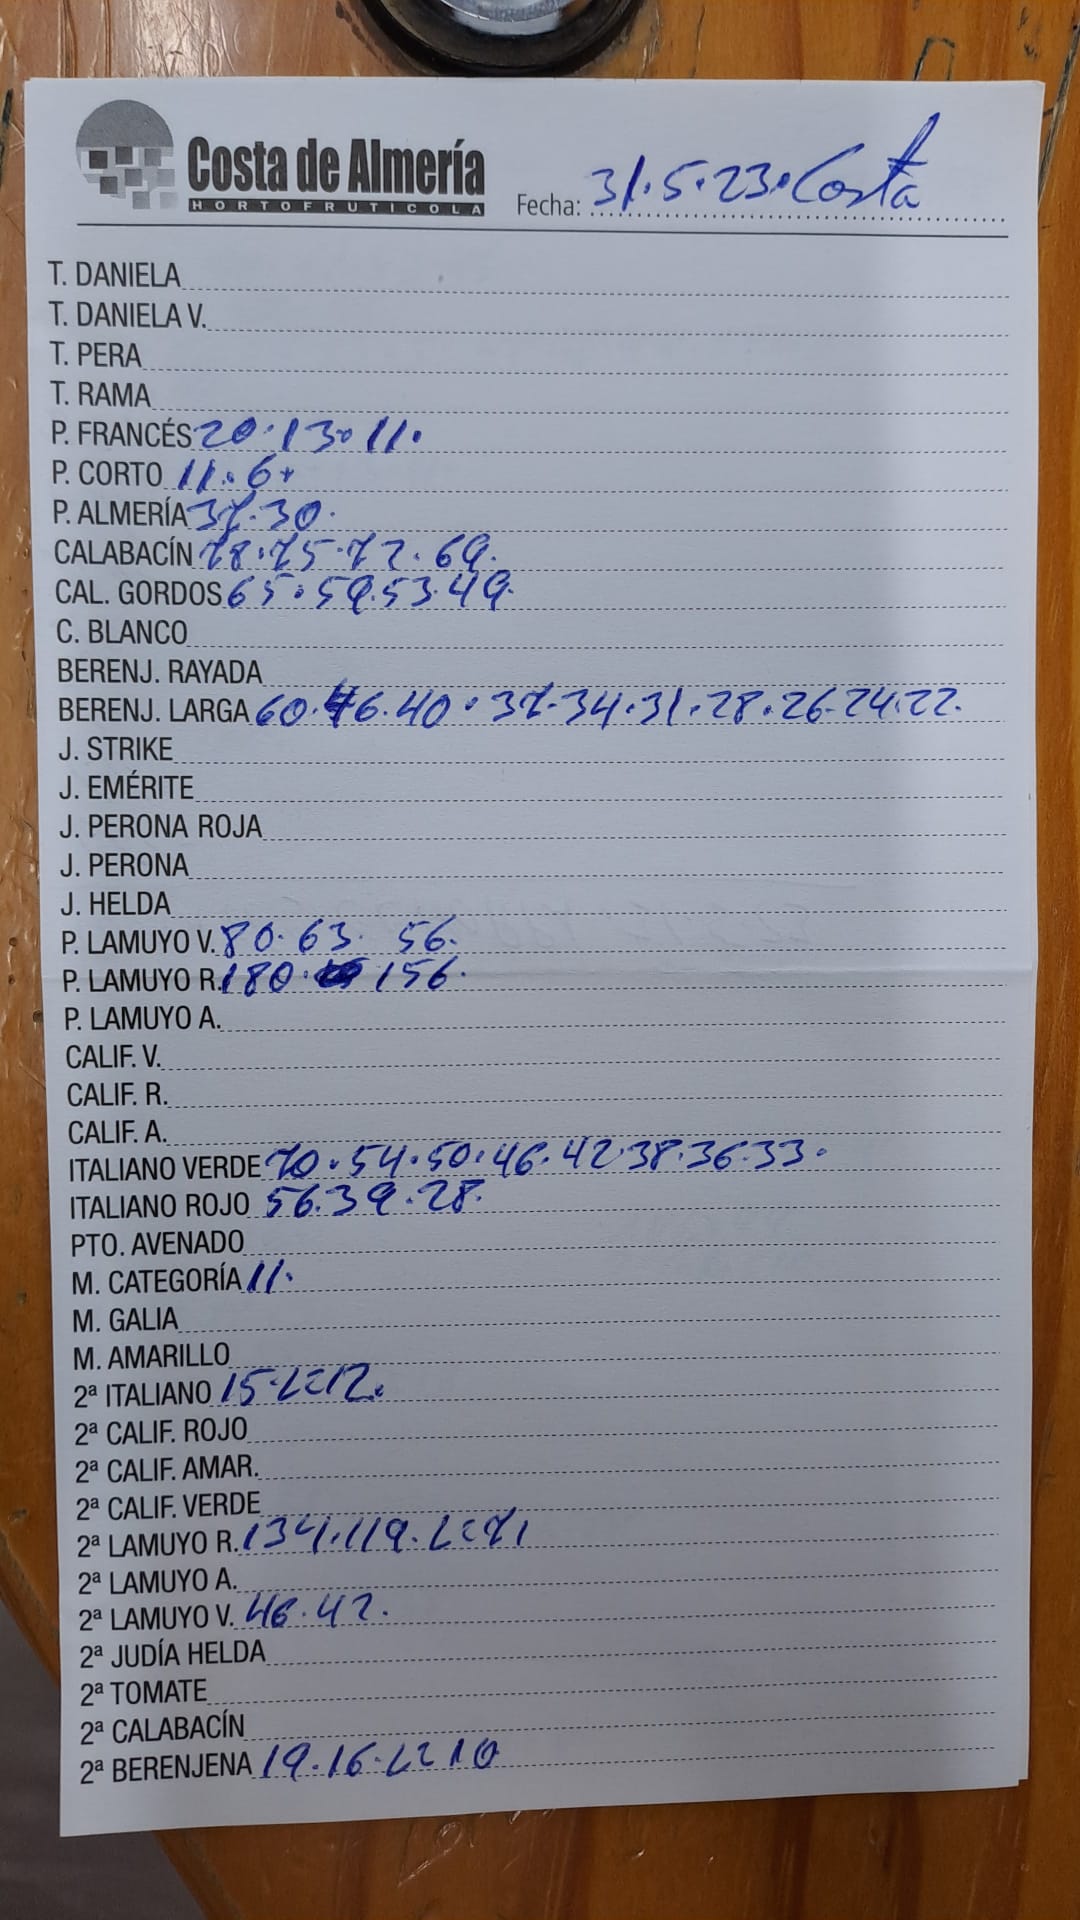 Costa de Almería
HORTOFRUTICOLA
Fecha: 31.5.23. Costa
T. DANIELA
T. DANIELA V.
T. PERA
T. RAMA
P. FRANCÉS 20.13.11.
P. CORTO 11.6.
P. ALMERÍA 37.30.
CALABACÍN 78.75.72.69.
CAL. GORDOS 65.59.53.49.
C. BLANCO
BERENJ. RAYADA
BERENJ. LARGA 60.46.40.37.34.31.28.26.24.22.
J. STRIKE
J. EMÉRITE
J. PERONA ROJA
J. PERONA
J. HELDA
P. LAMUYO V. 80.63. 56.
P. LAMUYO R. 180. 156.
P. LAMUYO A.
CALIF. V.
CALIF. R.
CALIF. A.
ITALIANO VERDE 70.54.50.46.42.38.36.33.
ITALIANO ROJO 56.39.28.
PTO. AVENADO
M. CATEGORÍA 11.
M. GALIA
M. AMARILLO
2ª ITALIANO 15. 12.
2ª CALIF. ROJO
2ª CALIF. AMAR.
2ª CALIF. VERDE
2ª LAMUYO R. 134.119. 71
2ª LAMUYO A.
2ª LAMUYO V. 46.42.
2ª JUDÍA HELDA
2ª TOMATE
2ª CALABACÍN
2ª BERENJENA 19.16. 10